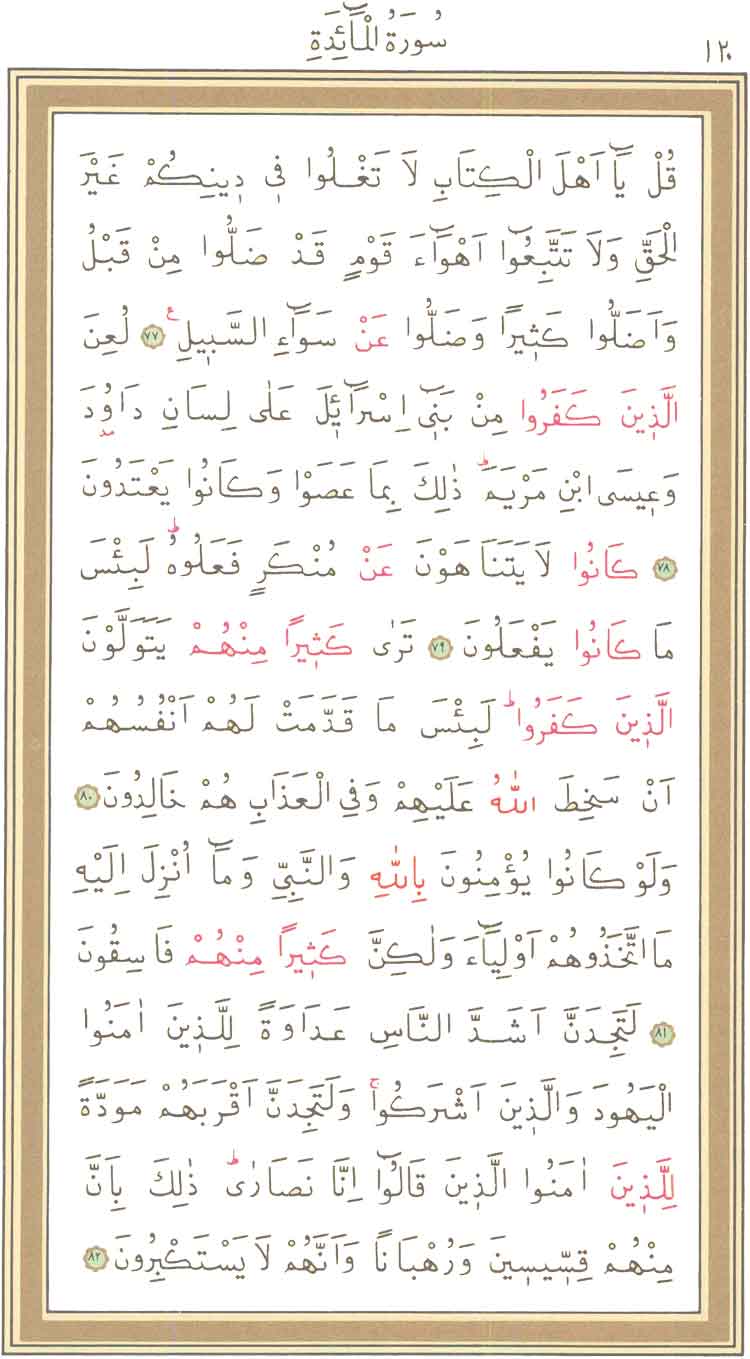 سُورَةُ الْمَٓائِدَةِ
١٢٠
قُلْ يَٓا اَهْلَ الْكِتَابِ لَا تَغْلُوا فٖي دٖينِكُمْ غَيْرَ
الْحَقِّ وَلَا تَتَّبِعُٓوا اَهْوَٓاءَ قَوْمٍ قَدْ ضَلُّوا مِنْ قَبْلُ
وَاَضَلُّوا كَثٖيرًا وَضَلُّوا عَنْ سَوَٓاءِ السَّبٖيلِۚ ع ٧٧ لُعِنَ
الَّذٖينَ كَفَرُوا مِنْ بَنٖٓي اِسْرَٓائٖلَ عَلٰى لِسَانِ دَاوُدَ
وَعٖيسَى ابْنِ مَرْيَمَؕ ذٰلِكَ بِمَا عَصَوْا وَكَانُوا يَعْتَدُونَ
٧٨ كَانُوا لَا يَتَنَاهَوْنَ عَنْ مُنْكَرٍ فَعَلُوهُؕ لَبِئْسَ
مَا كَانُوا يَفْعَلُونَ ٧٩ تَرٰى كَثٖيرًا مِنْهُمْ يَتَوَلَّوْنَ
الَّذٖينَ كَفَرُواؕ لَبِئْسَ مَا قَدَّمَتْ لَهُمْ اَنْفُسُهُمْ
اَنْ سَخِطَ اللّٰهُ عَلَيْهِمْ وَفِي الْعَذَابِ هُمْ خَالِدُونَ ٨٠
وَلَوْ كَانُوا يُؤْمِنُونَ بِاللّٰهِ وَالنَّبِيِّ وَمَٓا اُنْزِلَ اِلَيْهِ
مَا اتَّخَذُوهُمْ اَوْلِيَٓاءَ وَلٰكِنَّ كَثٖيرًا مِنْهُمْ فَاسِقُونَ
٨١ لَتَجِدَنَّ اَشَدَّ النَّاسِ عَدَاوَةً لِلَّذٖينَ اٰمَنُوا
الْيَهُودَ وَالَّذٖينَ اَشْرَكُواۚ وَلَتَجِدَنَّ اَقْرَبَهُمْ مَوَدَّةً
لِلَّذٖينَ اٰمَنُوا الَّذٖينَ قَالُٓوا اِنَّا نَصَارٰىؕ ذٰلِكَ بِاَنَّ
مِنْهُمْ قِسّٖيسٖينَ وَرُهْبَانًا وَاَنَّهُمْ لَا يَسْتَكْبِرُونَ ٨٢